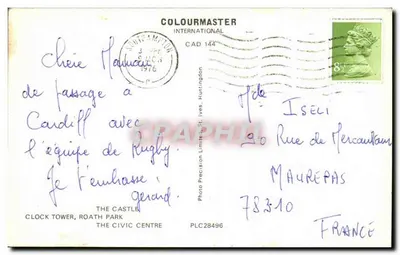 COLOURMASTER
INTERNATIONAL
CAD 144
1976
8½
Chère Maman
de passage à
Cardiff avec
l'équipe de Rugby.
Je t'embrasse.
Gérard.
THE CASTLE
CLOCK TOWER, ROATH PARK
THE CIVIC CENTRE PLC28496
Photo Precision Limited, St. Ives, Huntingdon
ISELI
90 Rue de
MAUREPAS
78310
FRANCE